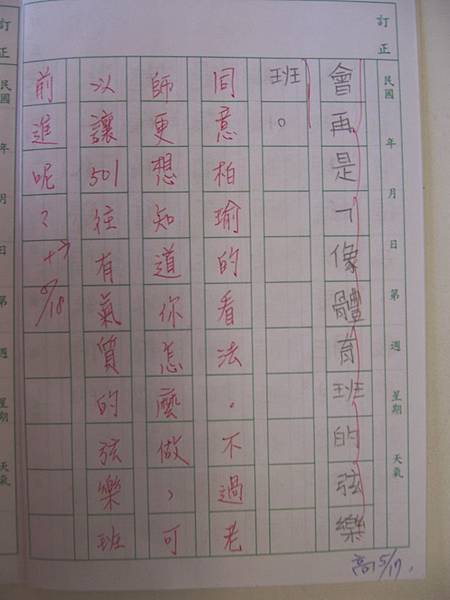 訂正
民國 年 月 日 第 週 星期 天氣
會再是「像體育班的弦樂
班。
同意柏瑜的看法。不過老
師更想知道你怎麼做,可
以讓501往有氣質的弦樂班
前進呢?
9/18
高 5/17.
訂正
民國 年 月 日 第 週 星期 天氣